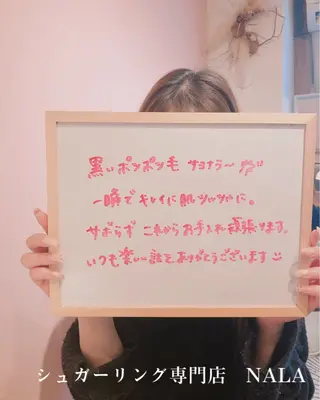 黒いポツポツ毛 サヨナラ〜
一瞬でキレイに肌ツヤツヤに。
サボらず これからお手入れ頑張ります。
いつも楽しい話をありがとうございます
シュガーリング専門店 NALA